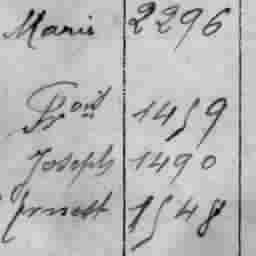 Marie 2296
1459
Joseph 1490
Ernest 1548